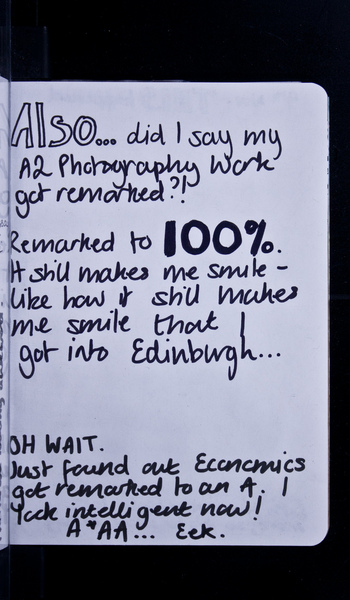 Also... did I say my
A2 Photography work
got remarked?!
Remarked to 100%.
It still makes me smile -
like how it still makes
me smile that I
got into Edinburgh...
OH WAIT.
Just found out Economics
got remarked to an A. I
look intelligent now!
A*AA... Eek.